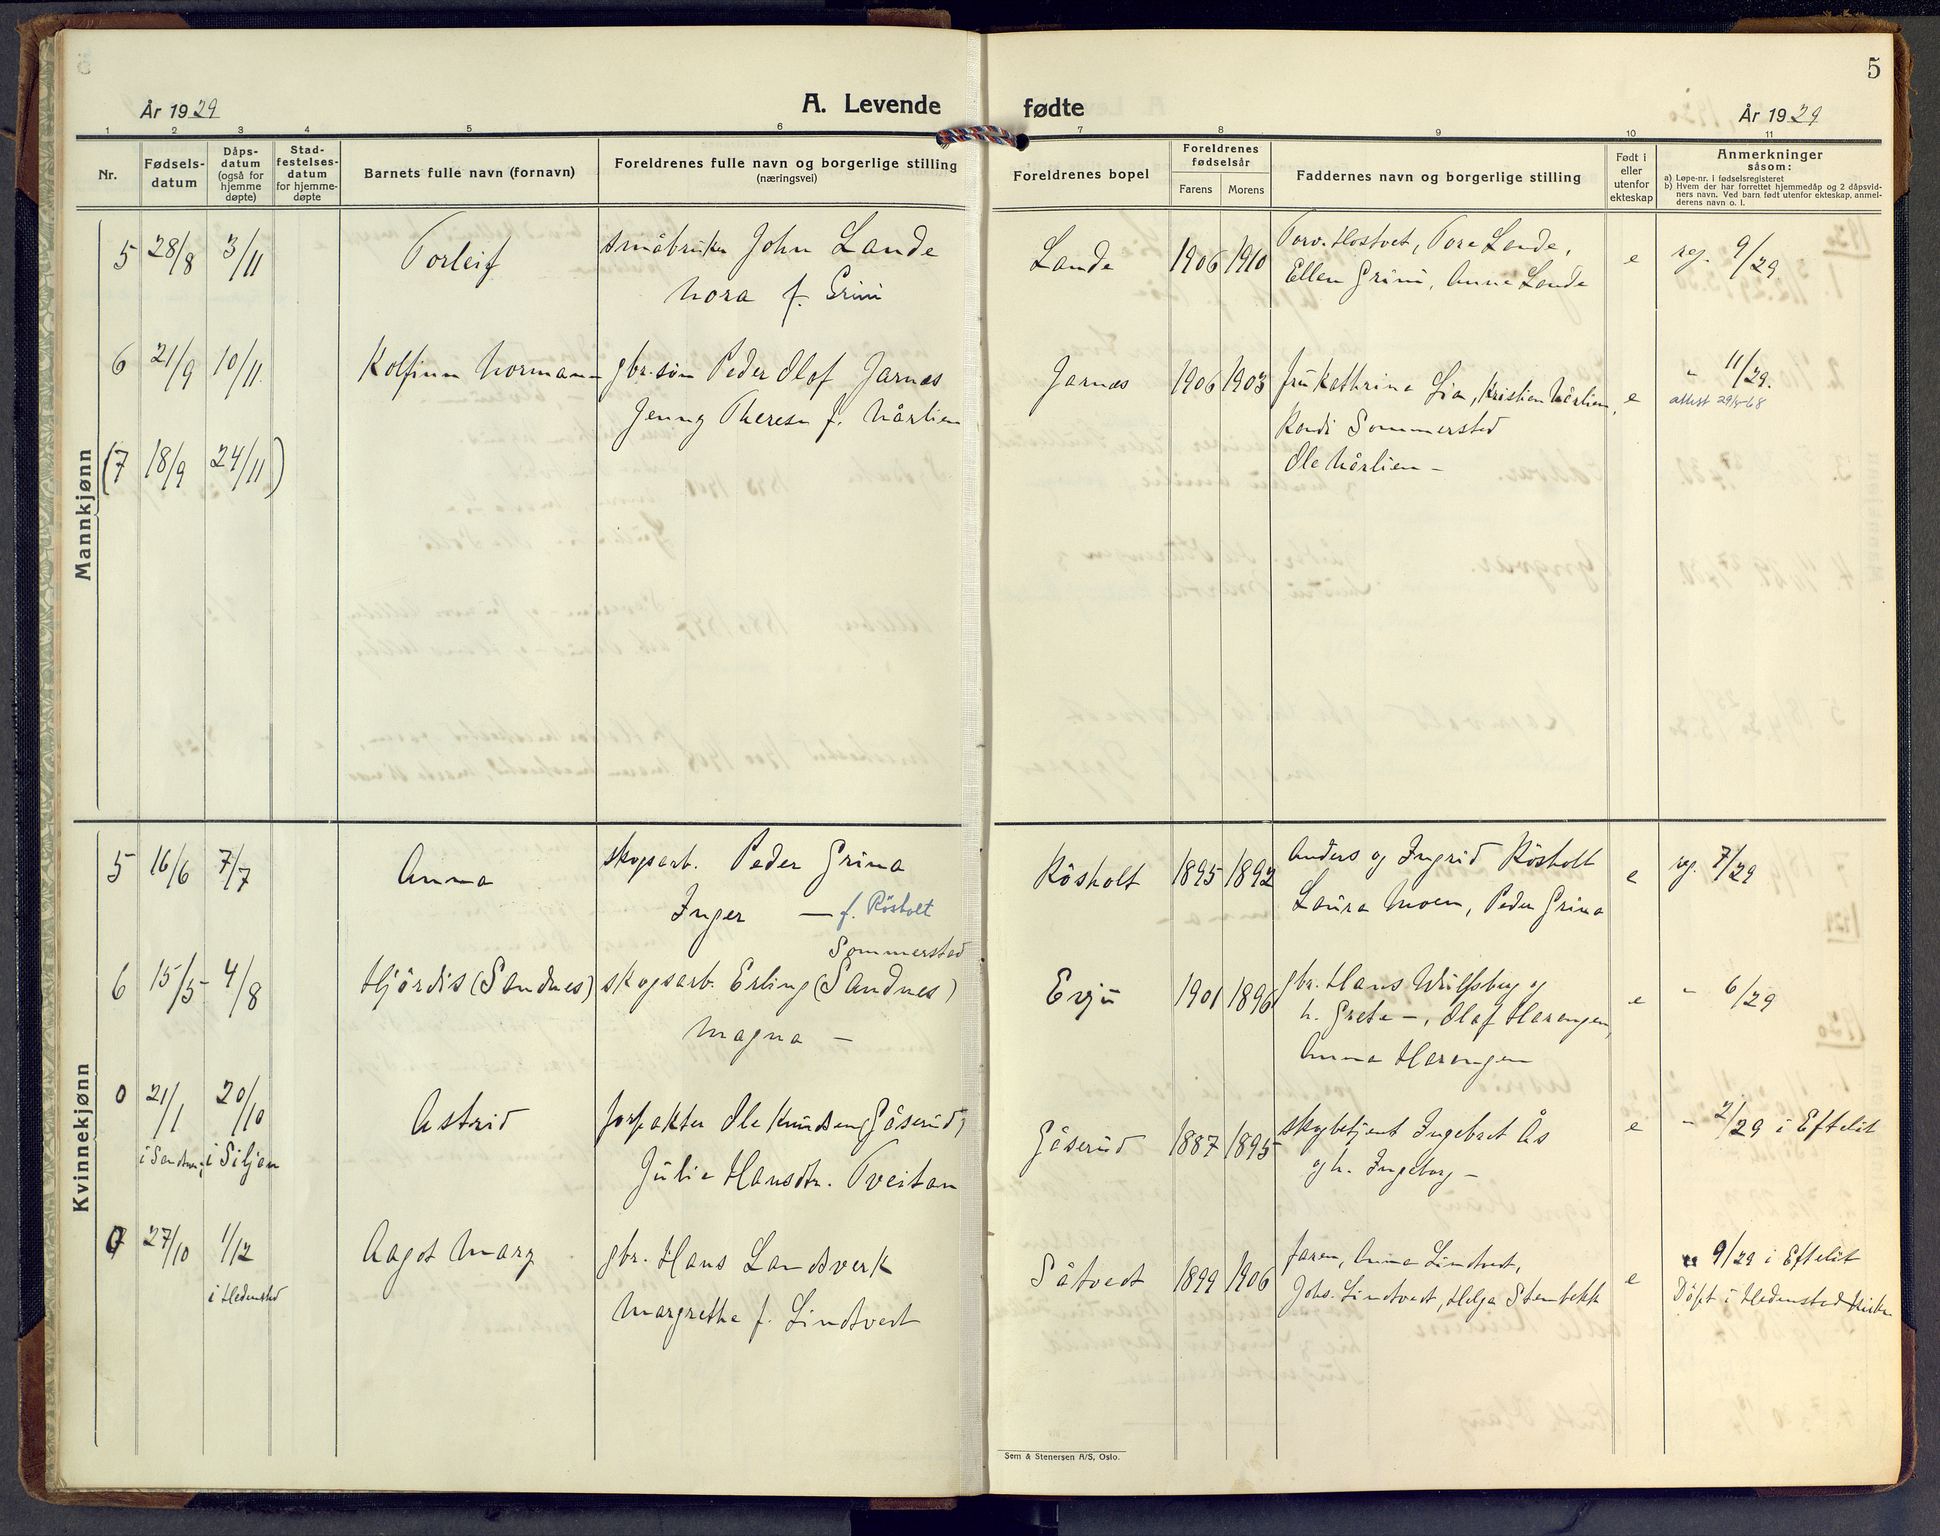 5
År 1929
A. Levende fødte
År 1929
1 2 3 4 5 6 7 8 9 10 11
Nr.
Fødsels-
datum
Dåps-
datum
(også for
hjemme
døpte)
Stad-
festelses-
datum
for hjemme-
døpte
Barnets fulle navn (fornavn)
Foreldrenes fulle navn og borgerlige stilling
(næringsvei)
Foreldrenes bopel
Foreldrenes
fødselsår
Farens Morens
Faddernes navn og borgerlige stilling
Født i
eller
utenfor
ekteskap
Anmerkninger
såsom:
a) Løpe-nr. i fødselsregisteret
b) Hvem der har forrettet hjemmedåp og 2 dåpsvid-
ners navn. Ved barn født utenfor ekteskap, anmel-
derens navn o. l.
Mannkjønn
5 28/8 3/11 Torleif småbruker John Lande Lande 1906 1910 Torv. Hostvet, Tora Lande, e reg. 9/29
Nora f. Grini Ellen Grini, Anna Lande
6 21/9 10/11 Kolfinn Normann gbr.søn Peder Olaf Jarnæs Jarnæs 1906 1903 fru Kathrine Lia, Kristian Nårlien, e " 11/29.
Jenny Theresa f. Nårlien Randi Sommersted attest 29/5-68
Ole Nårlien –
(7 18/9 24/11)
Kvinnekjønn
5 16/6 7/7 Anna skogsarb. Peder Grina Røsholt 1895 1892 Anders og Ingrid Røsholt e reg. 7/29
Inger — f. Røsholt Laura Moen, Peder Grina
Sommersted
6 15/5 4/8 Hjørdis (Sandnes) skogsarb. Erling (Sandnes) Evju 1901 1896 gbr. Hans Wulfsberg og e " 6/29
Magna — h. Grete –, Olaf Harengen,
Anna Harengen
0 21/1 20/10 Astrid forpakter Ole Knudsen (Gåserud) Gåserud 1887 1895 skogbetjent Ingebret Ås e " 2/29 i Efteløt
i Siljan Julie Hansdtr. Tveitan og h. Ingeborg –
0 27/10 1/12 Aagot Marg gbr. Hans Landsverk Såtvedt 1899 1906 faren, Anna Lindtvedt, e " 9/29 i Efteløt
i Hedensted Margrethe f. Lindtvedt Johs. Lindtvedt, Helga Stenbekk Døpt i Hedensted kirke
Sem & Stenersen A/S, Oslo.